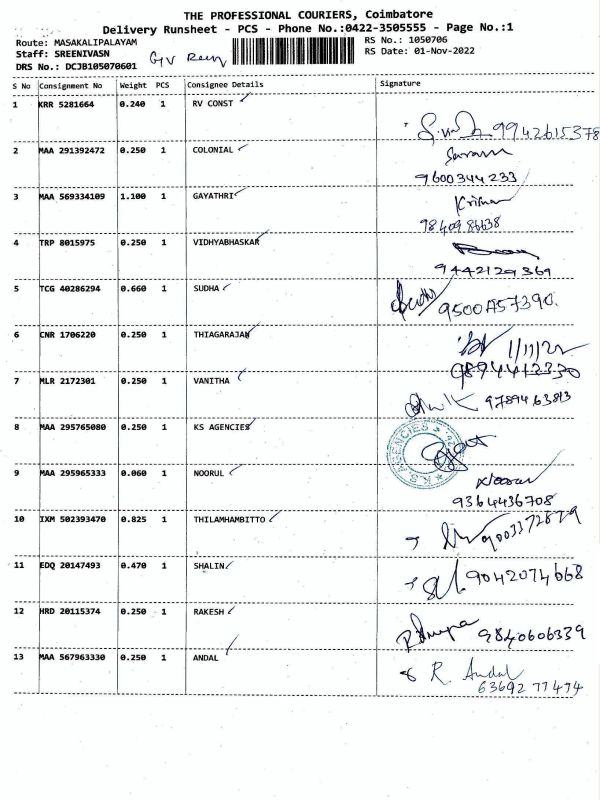 THE PROFESSIONAL COURIERS, Coimbatore
Delivery Runsheet - PCS - Phone No.:0422-3505555 - Page No.:1
Route: MASAKALIPALAYAM
RS No.: 1050706
Staff: SREENIVASN
RS Date: 01-Nov-2022
DRS No.: DCJB105070601
S No Consignment No Weight PCS Consignee Details Signature
1 KRR 5281664 0.240 1 RV CONST
9942615378
2 MAA 291392472 0.250 1 COLONIAL
9600344233
3 MAA 569334109 1.100 1 GAYATHRI
9840986638
4 TRP 8015975 0.250 1 VIDHYABHASKAR
9442129369
5 TCG 40286294 0.660 1 SUDHA
Sudha
6 CNR 1706220 0.250 1 THIAGARAJAN
1/11/22
9894412330
7 MLR 2172301 0.250 1 VANITHA
9789463813
8 MAA 295765080 0.250 1 KS AGENCIES
K.S. AGENCIES
9 MAA 295965333 0.060 1 NOORUL
9364436708
10 IXM 502393470 0.825 1 THILAMHAMBITTO
9003372879
11 EDQ 20147493 0.470 1 SHALIN
9042074668
12 HRD 20115374 0.250 1 RAKESH
9840606339
13 MAA 567963330 0.250 1 ANDAL
R. Andal
63692 77474